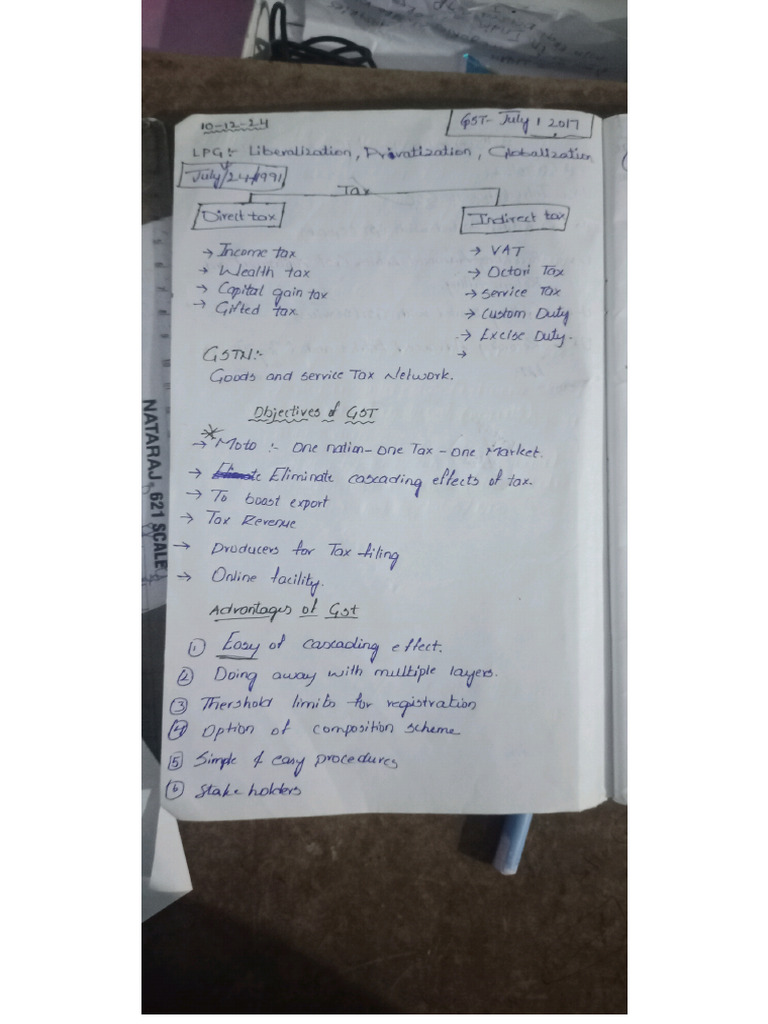 10-12-24
GST- July 1 2017
LPG:- Liberalization, Privatization, Globalization
July/24/1991
Tax
Direct tax
Indirect tax
→ Income tax
→ Wealth tax
→ Capital gain tax
→ Gifted tax
→ VAT
→ Octori Tax
→ Service Tax
→ Custom Duty
→ Excise Duty.
→
GSTN:-
Goods and service Tax Network.
Objectives of GST
→ Moto :- one nation-one Tax-one Market.
→ Eliminate cascading effects of tax.
→ To boast export
→ Tax Revenue
→ Producers for Tax filing
→ Online facility.
Advantages of Gst
① Easy of cascading effect.
② Doing away with multiple layers.
③ Thershold limits for registration
④ Option of composition scheme
⑤ Simple & easy procedures
⑥ Stake holders
NATARAJ 621 SCALE